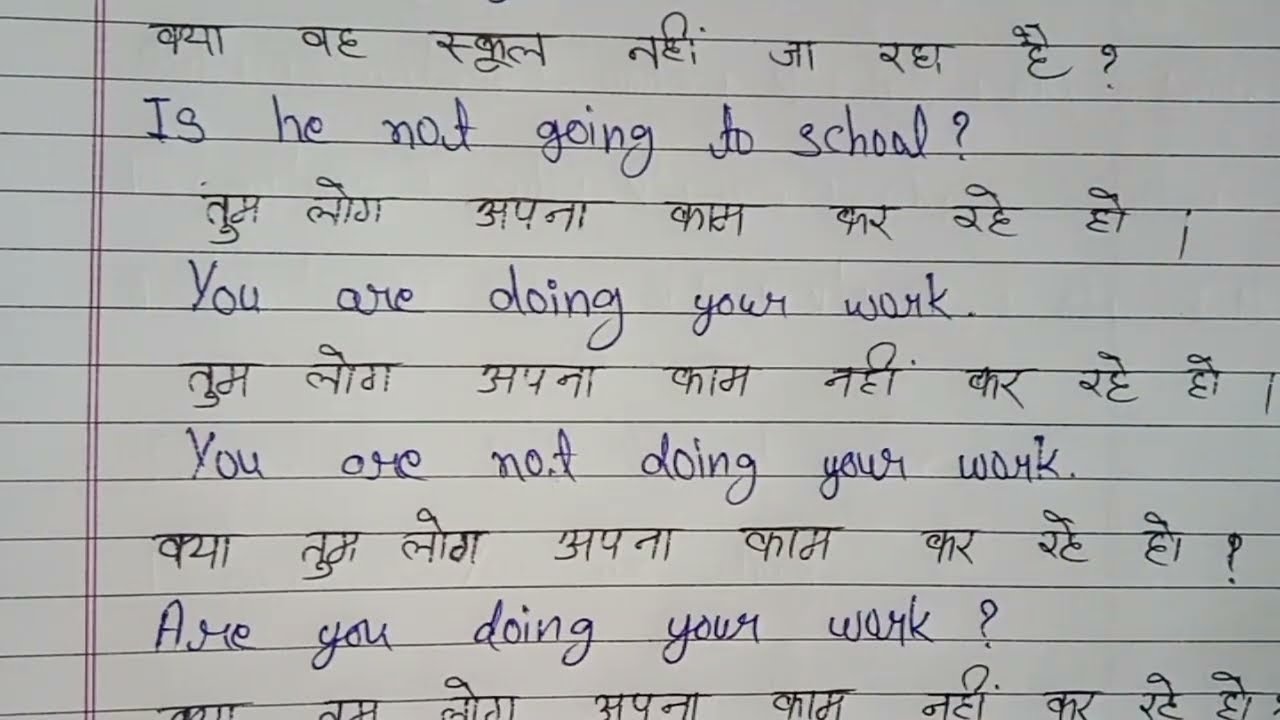 क्या वह स्कूल नहीं जा रहा है ?
Is he not going to school?
तुम लोग अपना काम कर रहे हो ।
You are doing your work.
तुम लोग अपना काम नहीं कर रहे हो ।
You are not doing your work.
क्या तुम लोग अपना काम कर रहे हो ?
Are you doing your work ?
क्या तुम लोग अपना काम नहीं कर रहे हो ?